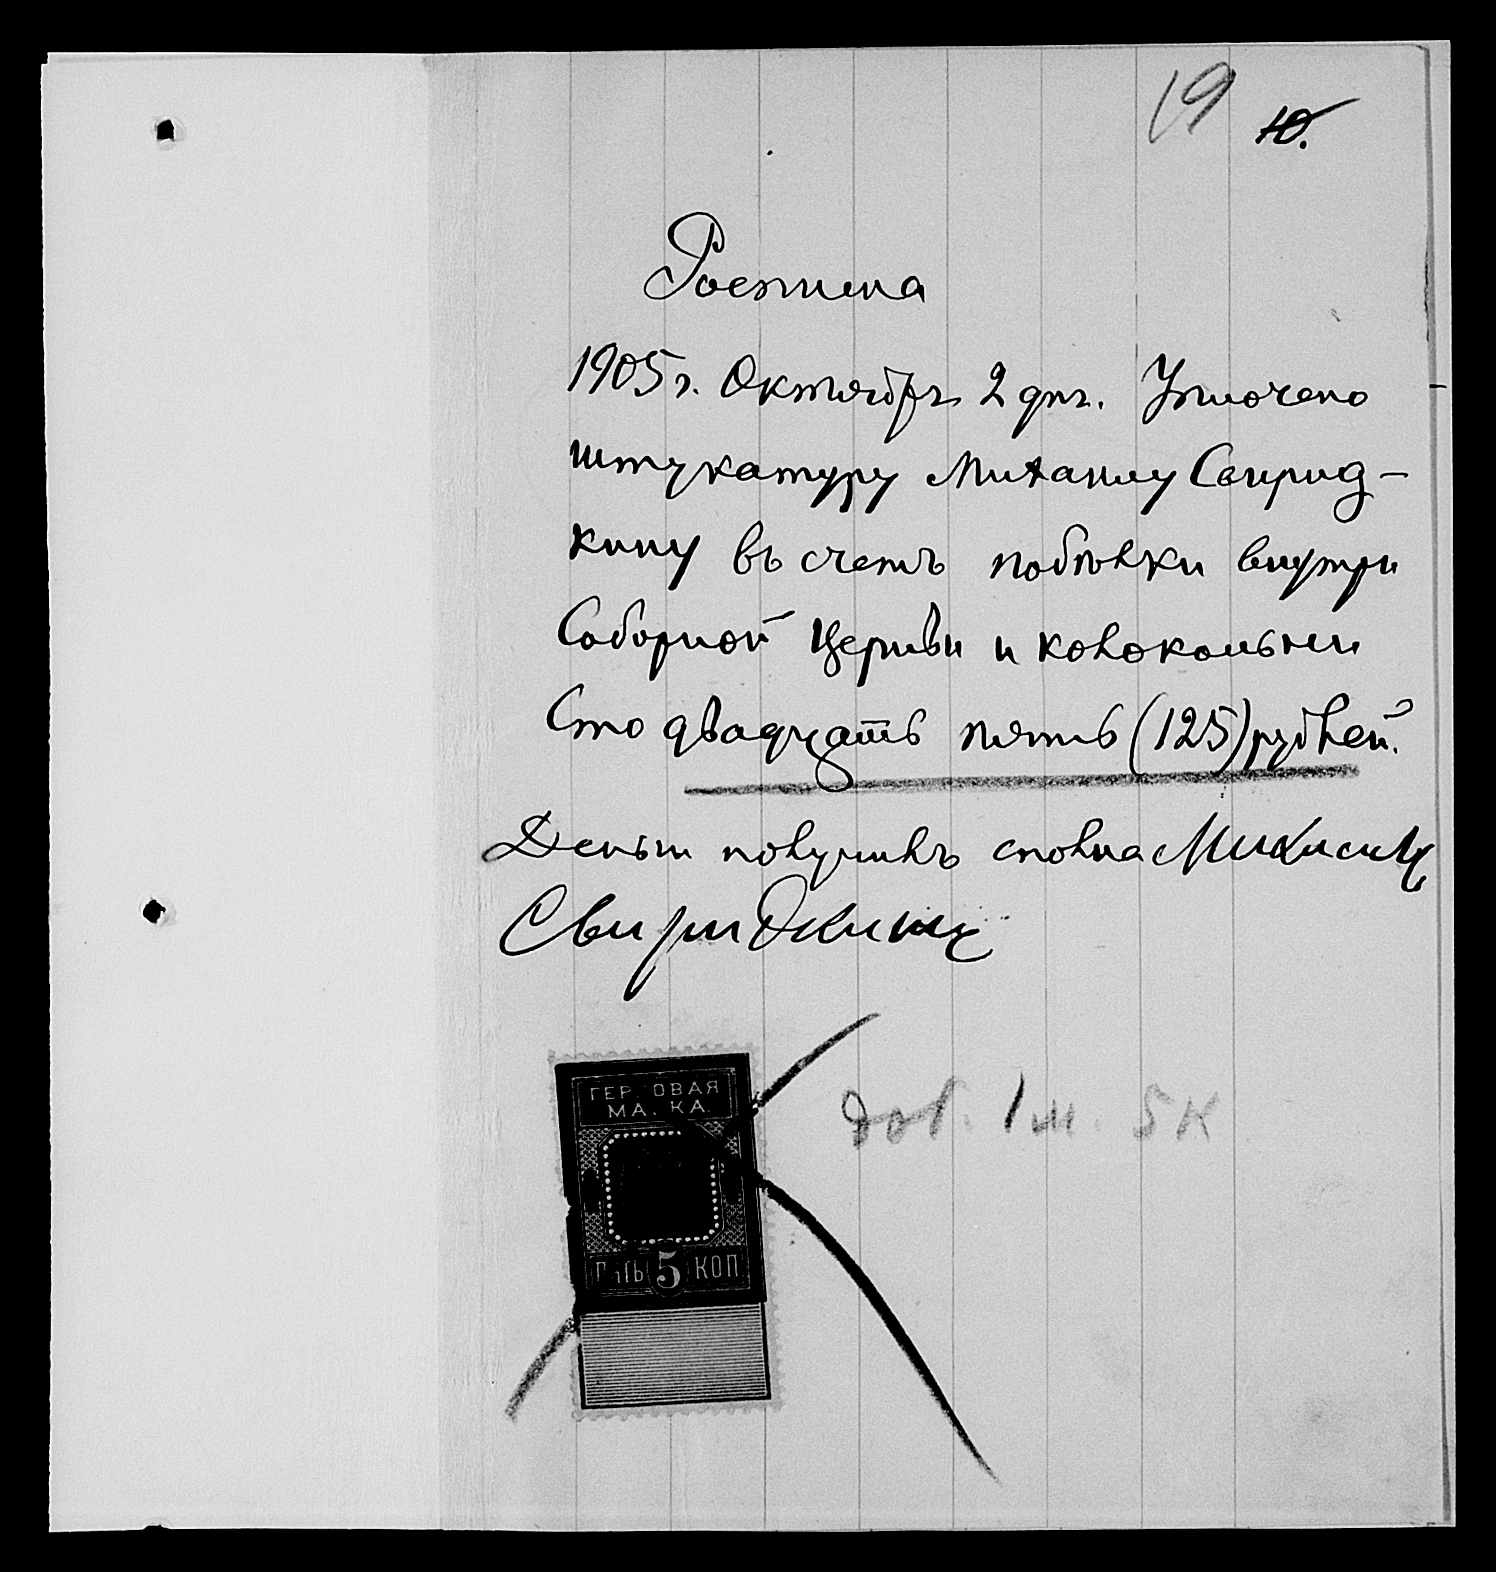 19 10.
Росписка
1905 г. Октября 2 дня. Уплочено
штукатуру Михаилу Свирид-
кину въ счетъ побѣлки внутри
Соборной Церкви и колокольни
Сто двадцать пять (125) рублей.
Деньги получилъ сполна Михаилъ
Свиридкинъ
ГЕРБОВАЯ
МАРКА
ПЯТЬ 5 КОП
1 м. 5 К